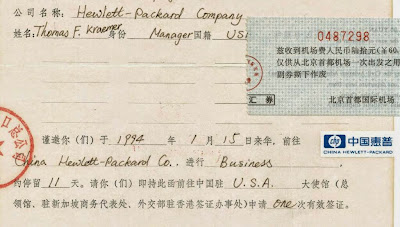 公司名称: Hewlett-Packard Company
姓名: Thomas F. Kraemer 身份 Manager 国籍 USA
谨邀你(们)于 1994 年 1 月 15 日来华,前往
China Hewlett-Packard Co.. 进行 Business
约停留 11 天。请你(们)即持此函前往中国驻 U.S.A. 大使馆(总
领馆、驻新加坡商务代表处、外交部驻香港签证办事处)申请 one 次有效签证。
0487298
兹收到机场费人民币陆拾元(¥60.
仅供从北京首都机场一次出发之用
副券撕下作废
汇 券
北京首都国际机场
hp 中国惠普
CHINA HEWLETT-PACKARD
口总公司